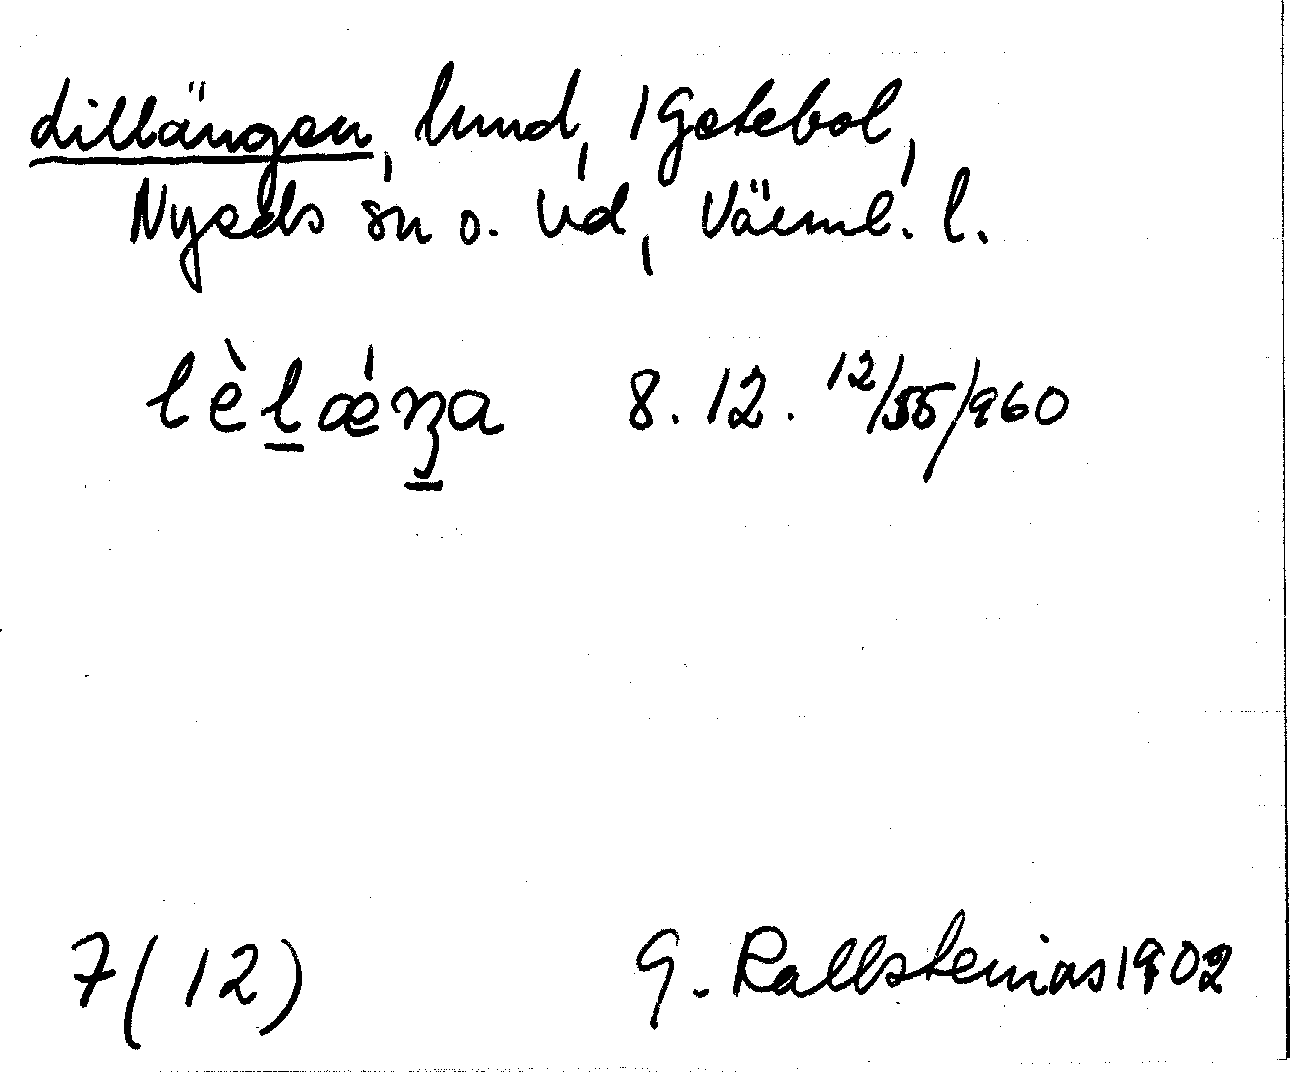 Lillängen, lund, 1 Getebol,
Nyeds sn o. hd, Värml. l.
lèlǽŋa 8. 12. 12/55/960
7(12)
G. Kallstenius 1902